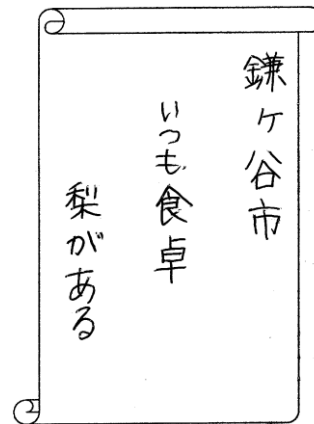 鎌ケ谷市
いつも食卓
梨がある